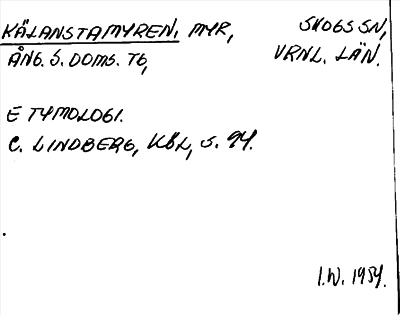 KÄLANSTAMYREN, MYR, SKOGS SN,
ÅNG. S. DOMS. TG, VRNL. LÄN.
ETYMOLOGI.
C. LINDBERG, KBL, S. 94.
I.W. 1954.